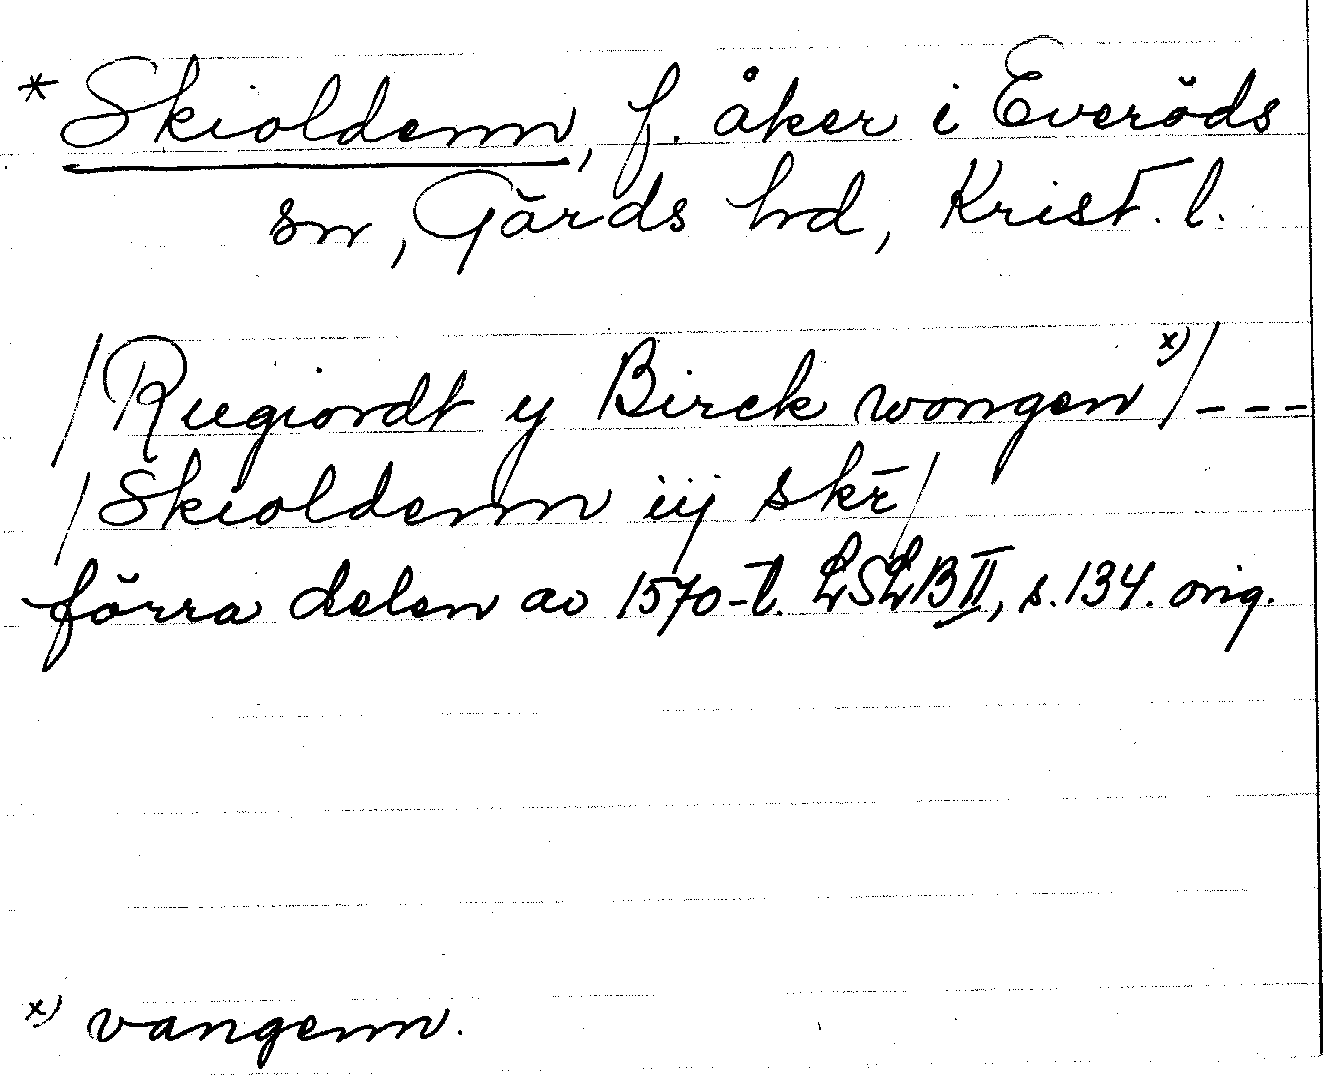 * Skioldenn, f. åker i Everöds
sn, Gärds hd, Krist. l.
/Rugiordt y Birck wongen x)/---
/Skioldenn iij skr̄/
förra delen av 1570-t. LSLB II, s. 134. orig.
x) vangenn.